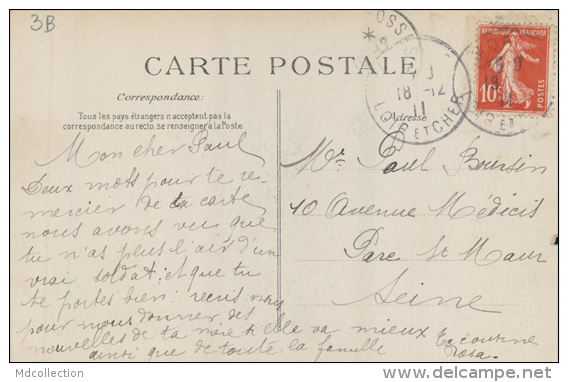 3B
OSSE
18 -12
11
LOIR ET CHER
REPUBLIQUE FRANÇAISE
10c
POSTES
CARTE POSTALE
Correspondance:
Tous les pays étrangers n'acceptent pas la
correspondance au recto, se renseigner à la Poste
Adresse
Mon cher Paul
Deux mots pour te re-
mercier de ta carte
nous avons vu que
tu n'as plus l'air d'un
vrai soldat, et que tu
te portes bien; recris nous
pour nous donner des
nouvelles de ta mère si elle va mieux
ainsi que de toute la famille
Ta cousine
Rosa.
Mr Paul Boursin
10 Avenue Médicis
Parc St Maur
Seine
Mdcollection
www.delcampe.net